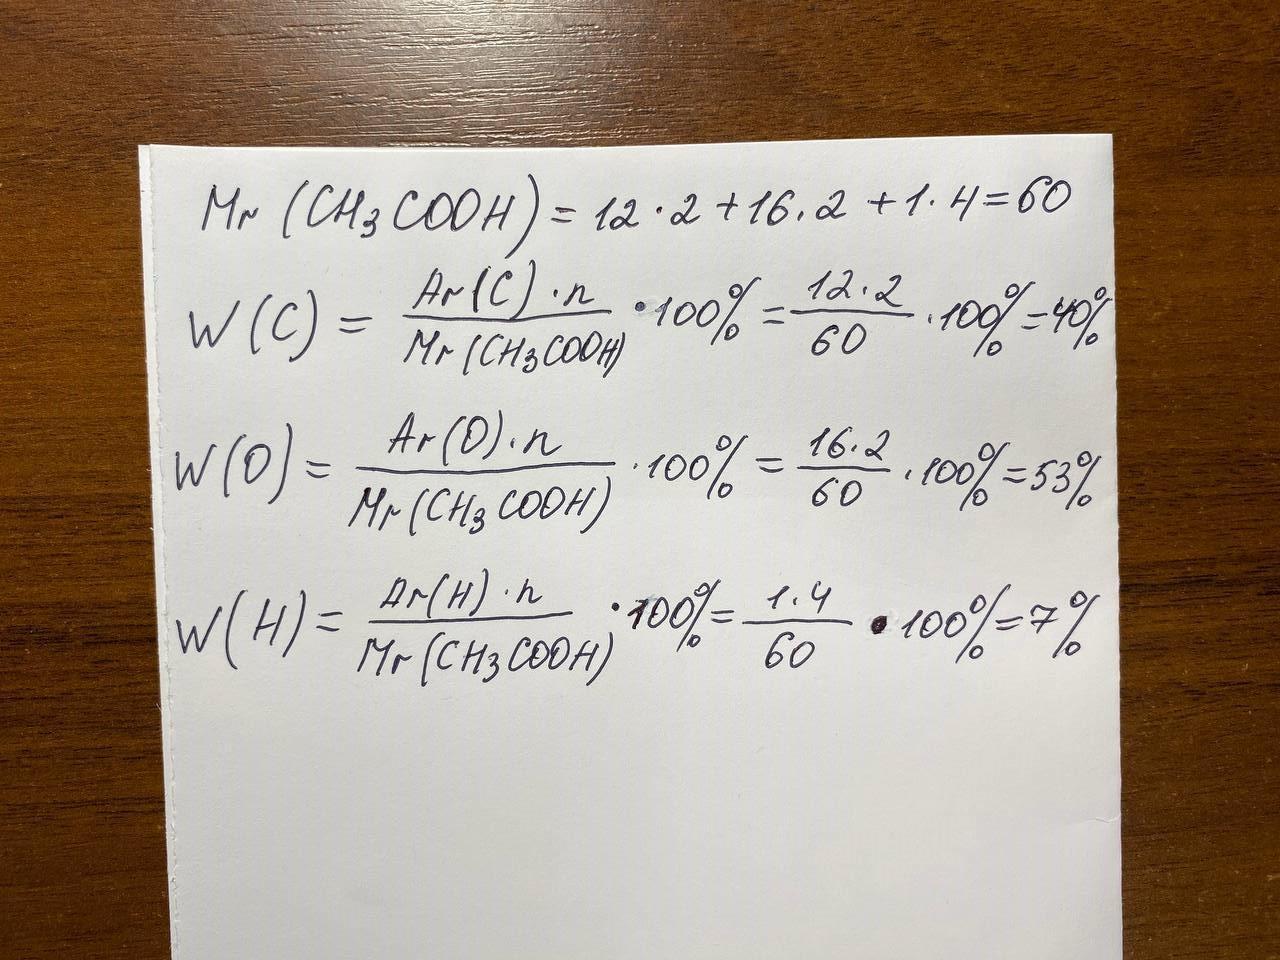 Mr (CH₃COOH) = 12 · 2 + 16 · 2 + 1 · 4 = 60
W(C) = Ar(C) · n / Mr (CH₃COOH) · 100% = 12 · 2 / 60 · 100% = 40%
W(O) = Ar(O) · n / Mr (CH₃COOH) · 100% = 16 · 2 / 60 · 100% = 53%
W(H) = Ar(H) · n / Mr (CH₃COOH) · 100% = 1 · 4 / 60 · 100% = 7%